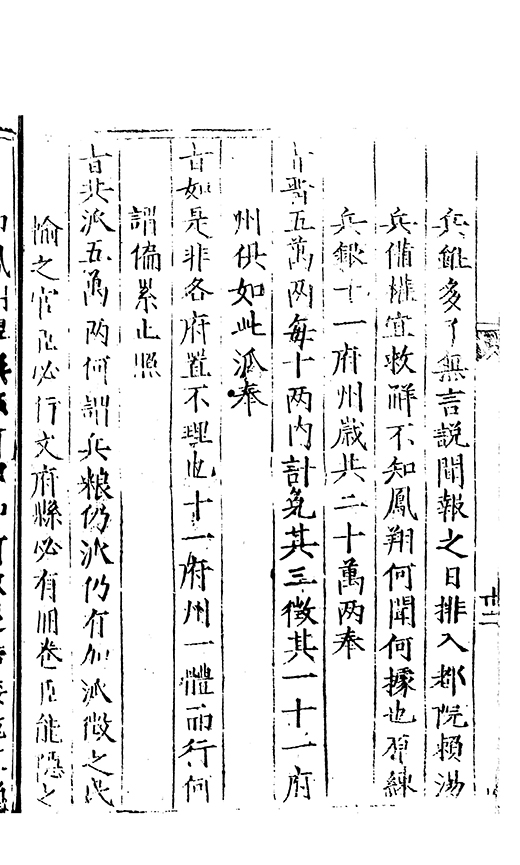 兵餉多了無言說聞報之日排入都院賴湯
兵備權宜救解不知鳳翔何聞何據也原練
兵銀十一府州歲共二十萬兩奉
五萬兩每十兩內計免其三徵其一十一府
州俱如此派奉
旨如是非各府置不理也十一府州一體而行何
謂偏累止照
旨共派五萬兩何謂兵粮仍派仍有加派徵之民
愉之官臣必行文府縣必有冊卷臣能隱之
十二